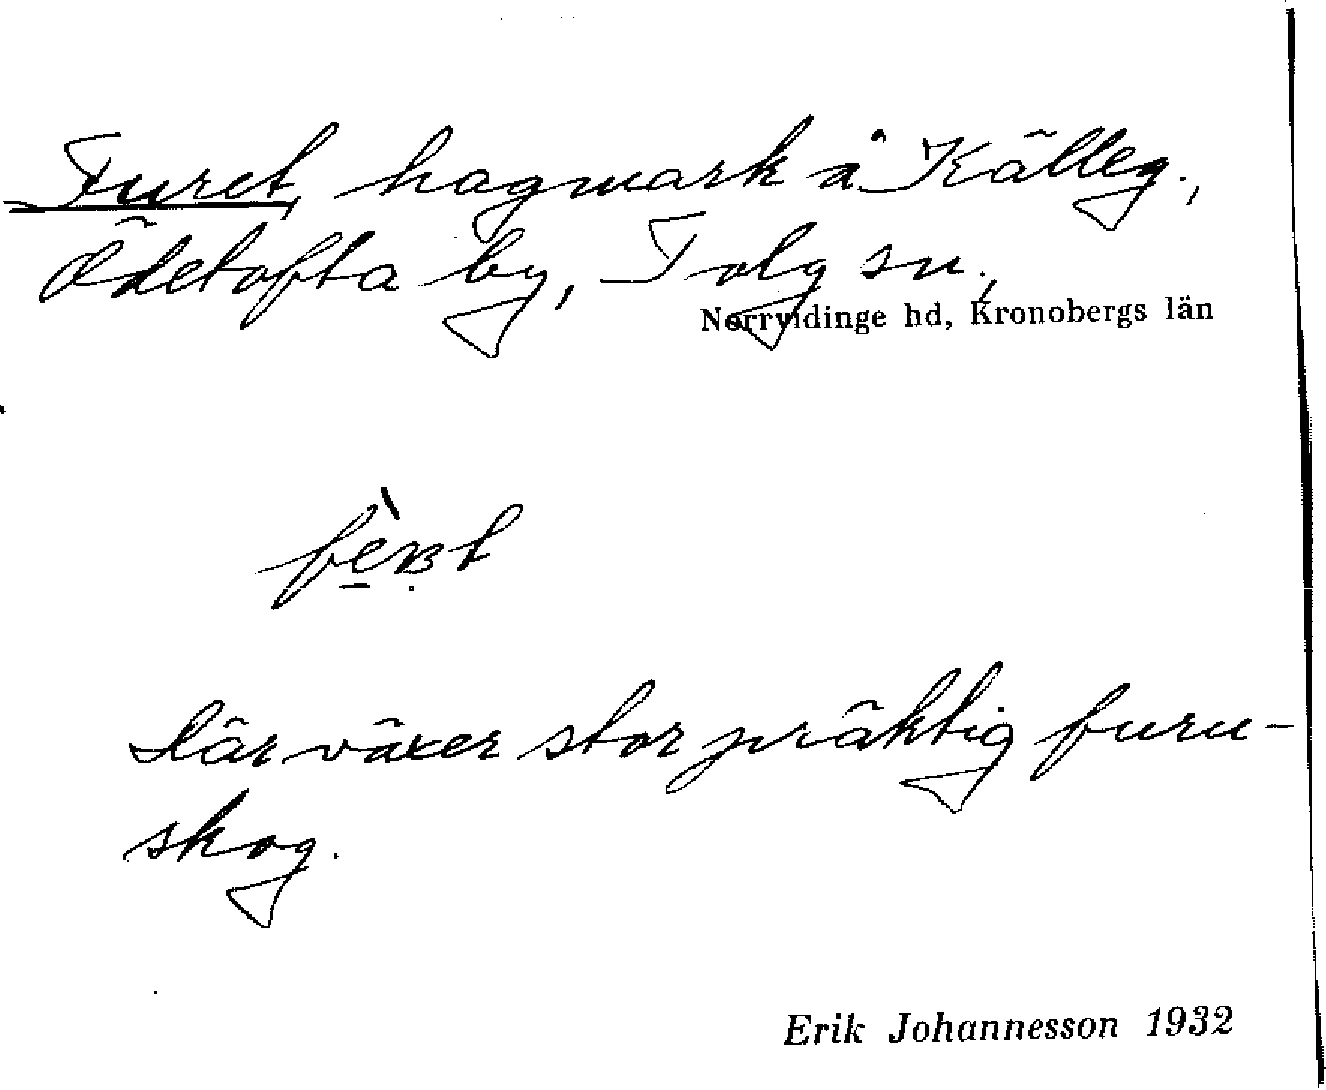 Furet, hagmark å Källeg.,
Ödetofta by, Tolg sn.,
Norrvidinge hd, Kronobergs län
Där växer stor präktig furu-
skog.
Erik Johannesson 1932